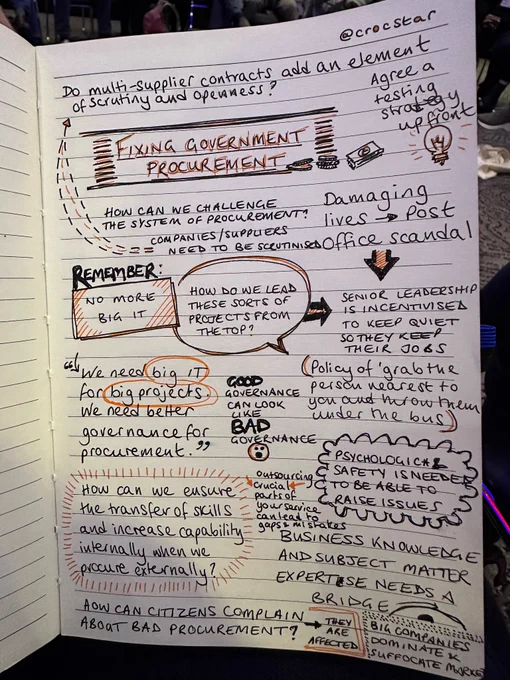 @crocstar
Do multi-supplier contracts add an element
of scrutiny and openness?
Agree a
testing
strategy
upfront
FIXING GOVERNMENT
PROCUREMENT
HOW CAN WE CHALLENGE
THE SYSTEM OF PROCUREMENT?
COMPANIES/SUPPLIERS
NEED TO BE SCRUTINISED
Damaging
lives → Post
Office scandal
REMEMBER:
NO MORE
BIG IT
HOW DO WE LEAD
THESE SORTS OF
PROJECTS FROM
THE TOP?
SENIOR LEADERSHIP
IS INCENTIVISED
TO KEEP QUIET
SO THEY KEEP
THEIR JOBS
(Policy of 'grab the
person nearest to
you and throw them
under the bus)
"We need big IT
for big projects.
We need better
governance for
procurement."
GOOD
GOVERNANCE
CAN LOOK
LIKE
BAD
GOVERNANCE
PSYCHOLOGICAL
SAFETY IS NEEDED
TO BE ABLE TO
RAISE ISSUES
How can we ensure
the transfer of skills
and increase capability
internally when we
procure externally?
outsourcing
crucial
parts of
your service
can lead to
gaps & mistakes
BUSINESS KNOWLEDGE
AND SUBJECT MATTER
EXPERTISE NEEDS A
BRIDGE
HOW CAN CITIZENS COMPLAIN
ABOUT BAD PROCUREMENT?
→ THEY
ARE
AFFECTED
BIG COMPANIES
DOMINATE &
SUFFOCATE MARKET